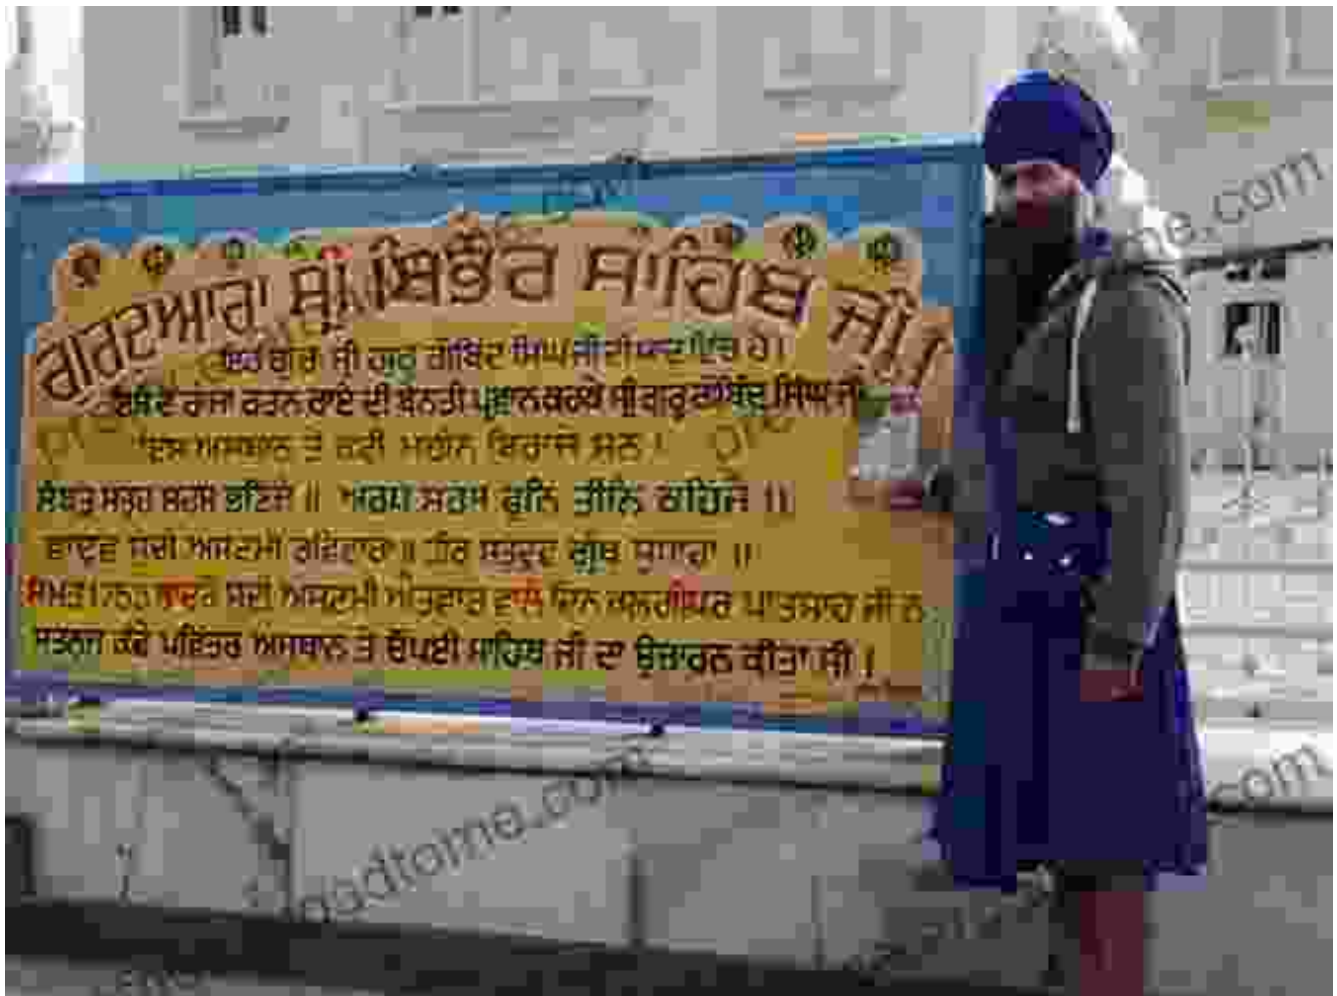 ਗੁਰਦੁਆਰਾ ਸ੍ਰੀ ਬਿਭੌਰ ਸਾਹਿਬ ਜੀ।
ਸ੍ਰੀ ਗੁਰੂ ਗੋਬਿੰਦ ਸਿੰਘ ਜੀ ਦੀ ਹੈ।
ਰਾਜਾ ਰਤਨ ਰਾਏ ਦੀ ਬੇਨਤੀ ਪ੍ਰਵਾਨ ਕਰਕੇ ਸ੍ਰੀ ਗੁਰੂ ਗੋਬਿੰਦ ਸਿੰਘ ਜੀ
ਇਸ ਅਸਥਾਨ ਤੇ ਕਈ ਮਹੀਨੇ ਬਿਰਾਜੇ ਸਨ।
ਸੰਬਤ ਸਤ੍ਰਹ ਸਹਸ ਭਣਿਜੈ ॥ ਅਰਧ ਸਹਸ ਫੁਨਿ ਤੀਨਿ ਕਹਿਜੈ ॥
ਭਾਦ੍ਰਵ ਸੁਦੀ ਅਸਟਮੀ ਰਵਿਵਾਰਾ ॥ ਤੀਰ ਸਤੁਦ੍ਰਵ ਗ੍ਰੰਥ ਸੁਧਾਰਾ ॥
ਸੁਦੀ ਅਸਟਮੀ ਐਤਵਾਰ ਵਾਲੇ ਦਿਨ ਪਾਤਸ਼ਾਹ ਜੀ ਨੇ
ਸਤਲੁਜ ਕੰਢੇ ਪਵਿੱਤਰ ਅਸਥਾਨ ਤੇ ਚੌਪਈ ਸਾਹਿਬ ਜੀ ਦਾ ਉਚਾਰਨ ਕੀਤਾ ਸੀ।